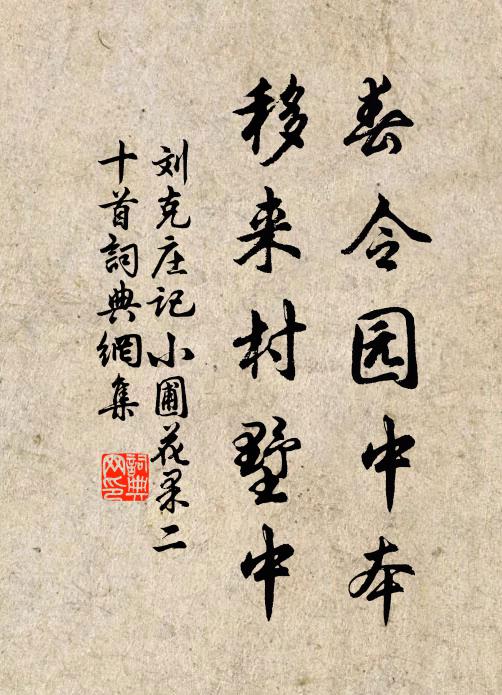 春令园中本
移来村墅中
刘克庄记小圃花果二
十首詞典網集
詞典
网印